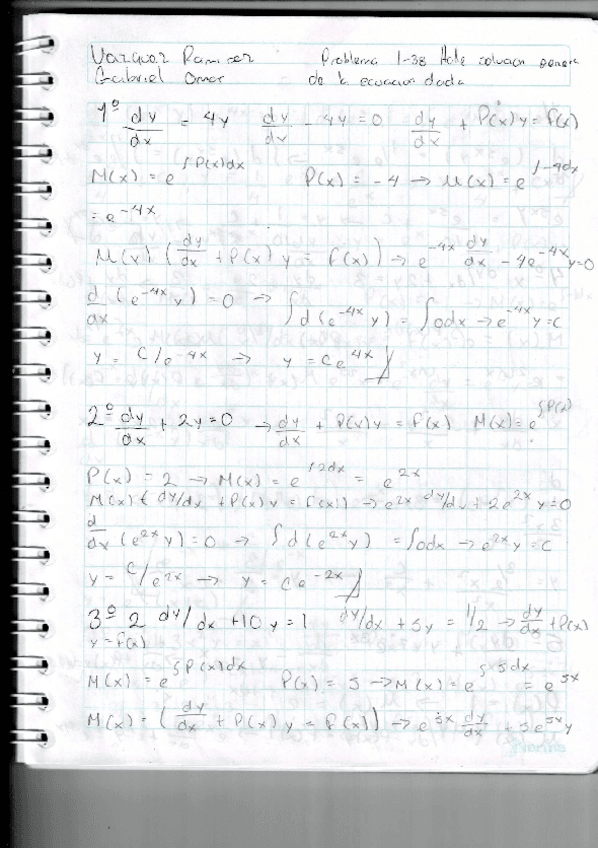 Vazquez Ramirez Problema 1-38 Halle solucion genera
Gabriel Omar de la ecuacion dada
1º dy/dx = 4y dy/dx - 4y = 0 dy/dx + P(x)y = f(x)
M(x) = e^∫P(x)dx P(x) = -4 → M(x) = e^∫-4dx
= e^-4x
M(x) (dy/dx + P(x) y = f(x)) → e^-4x dy/dx - 4e^-4x y=0
d/dx (e^-4x y) = 0 → ∫d(e^-4x y) = ∫0dx → e^-4x y = C
y = C/e^-4x → y = Ce^4x
2º dy/dx + 2y=0 → dy/dx + P(x)y = f(x) M(x) = e^∫P(x)
P(x) = 2 → M(x) = e^∫2dx = e^2x
M(x) ( dy/dx + P(x) y = f(x)) → e^2x dy/dx + 2e^2x y=0
d/dx (e^2x y) = 0 → ∫d(e^2x y) = ∫0dx → e^2x y = C
y = C/e^2x → y = Ce^-2x
3º 2 dy/dx +10y=1 dy/dx + 5y = 1/2 → dy/dx + P(x)
y = f(x)
M(x) = e^∫P(x)dx P(x) = 5 → M(x) = e^∫5dx = e^5x
M(x) = (dy/dx + P(x) y = f(x)) → e^5x dy/dx + 5e^5x y